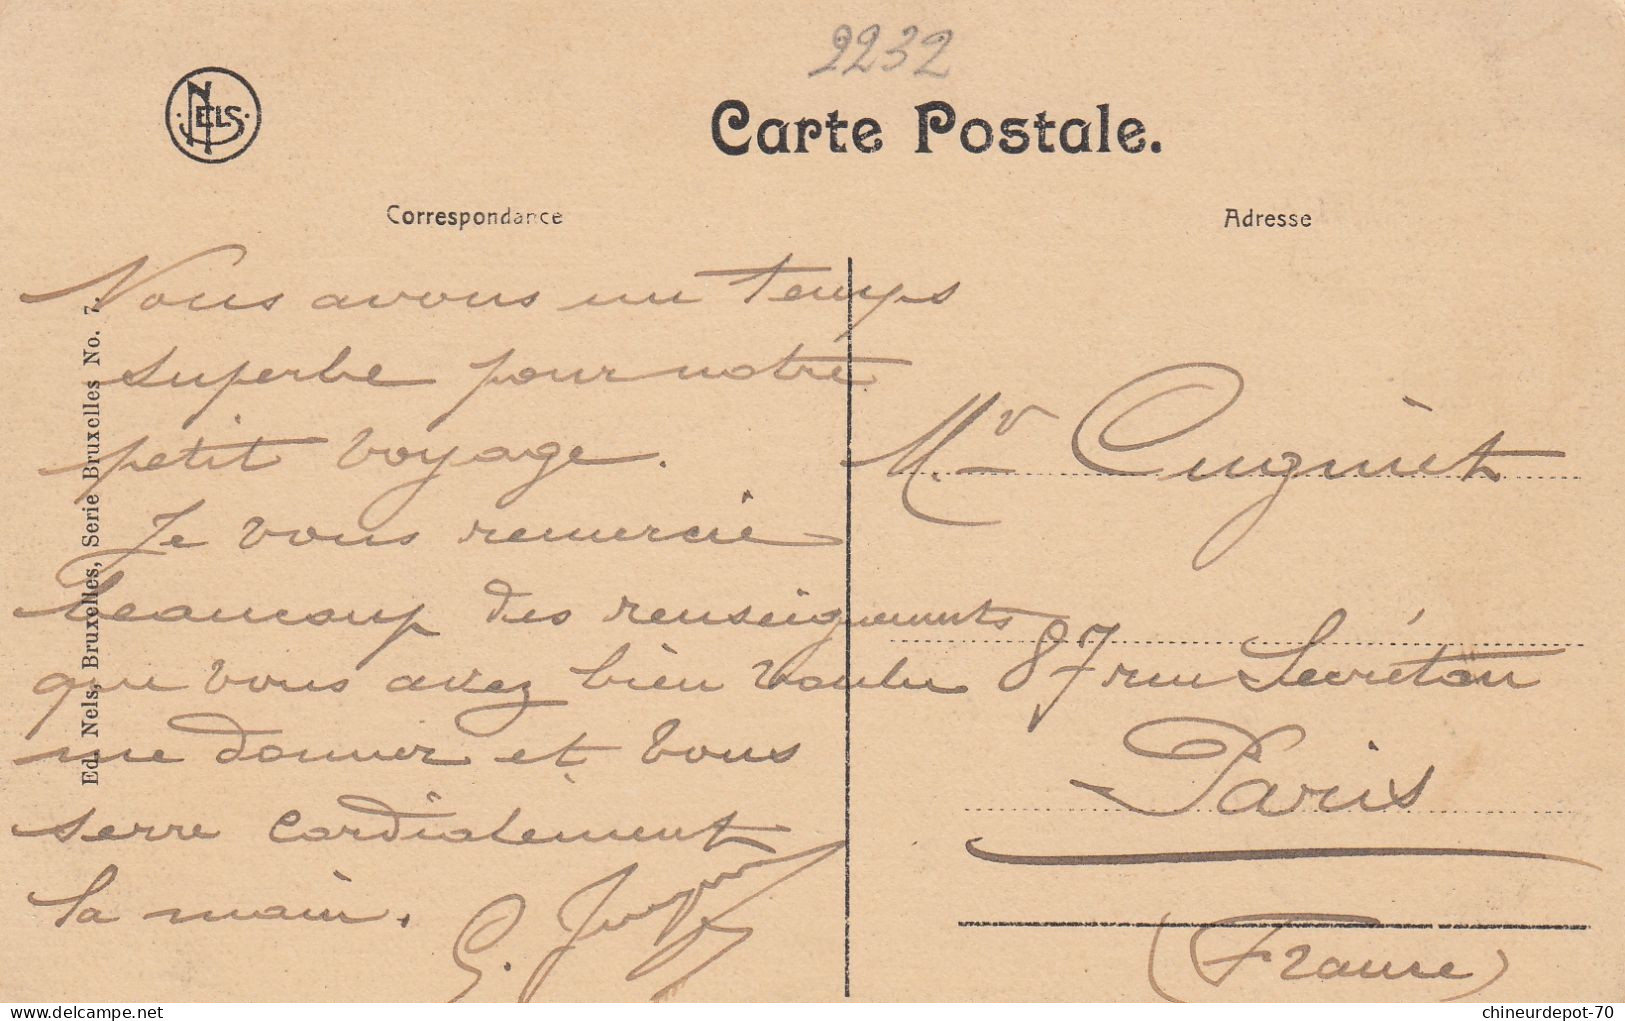 2232
NELS
Carte Postale.
Correspondance
Adresse
Nous avons un temps
superbe pour notre
petit voyage.
Je vous remercie
beaucoup des renseignements
que vous avez bien voulu
me donner et vous
serre cordialement
la main.
G.
Ed. Nels, Bruxelles, Serie Bruxelles No. 7.
Mr Cugniet
87 rue Secrétan
Paris
(France)
delcampe.net
chineurdepot-70